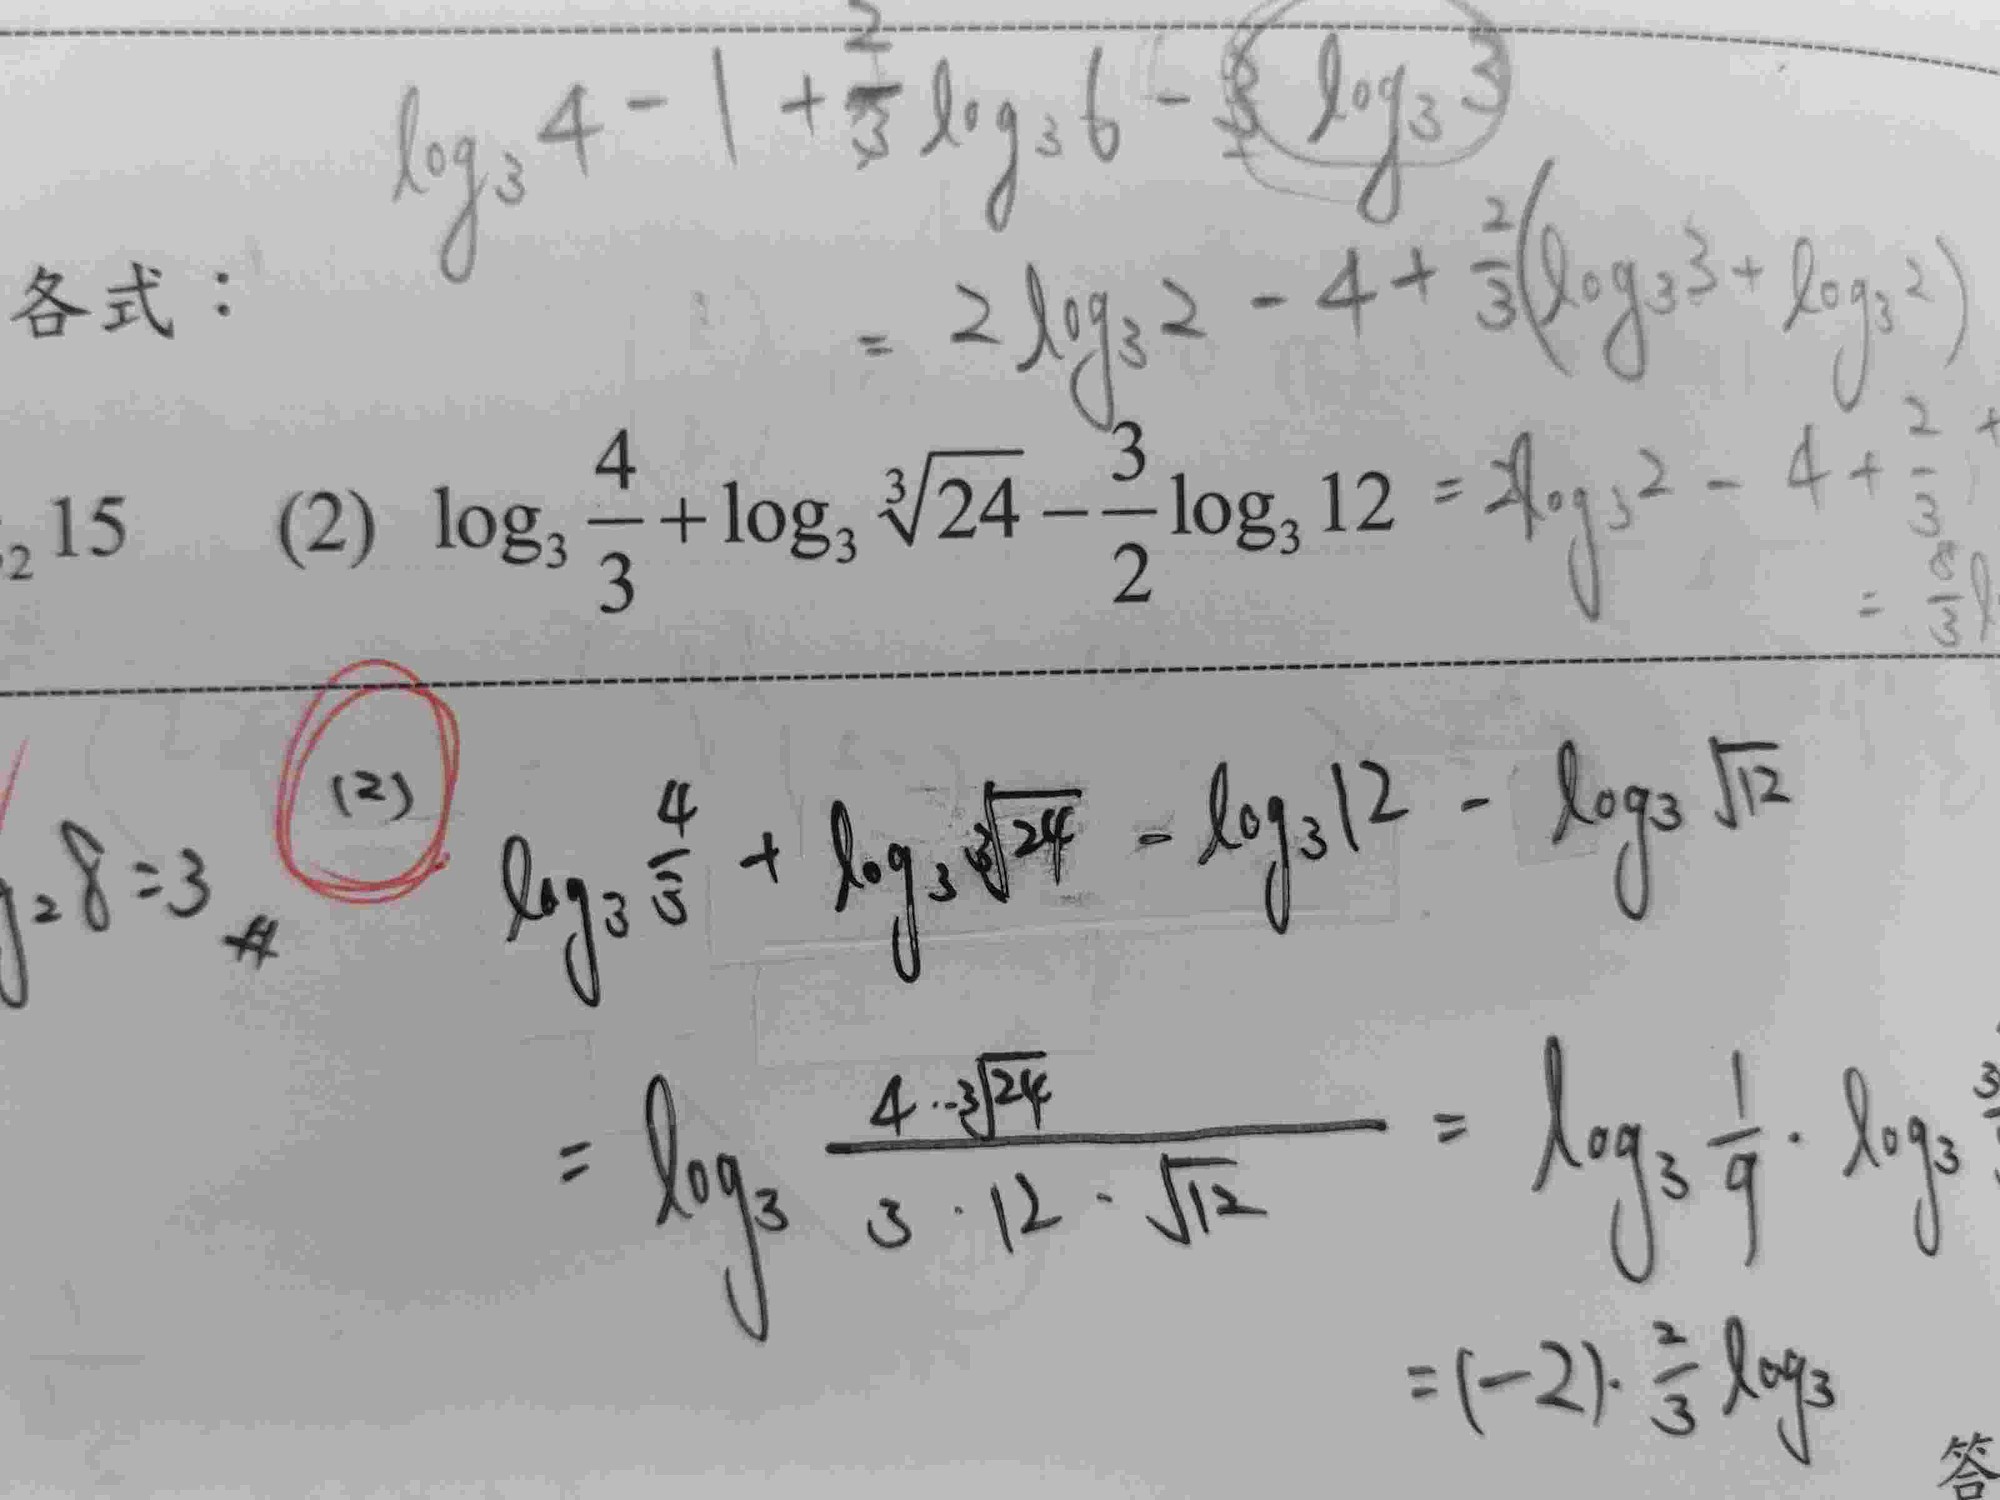 log₃4 - 1 + 2/3 log₃6 - log₃3
各式：
= 2log₃2 - 4 + 2/3(log₃3 + log₃2)
₂15 (2) log₃ 4/3 + log₃ ∛24 − 3/2 log₃ 12 = 2log₃2 - 4 + 2/3 +
= 8/3
(2) log₃ 4/3 + log₃ ∛24 - log₃12 - log₃ √12
₂8=3
= log₃ (4·∛24)/(3·12·√12) = log₃ 1/9 · log₃
=(-2)· 2/3 log₃
答